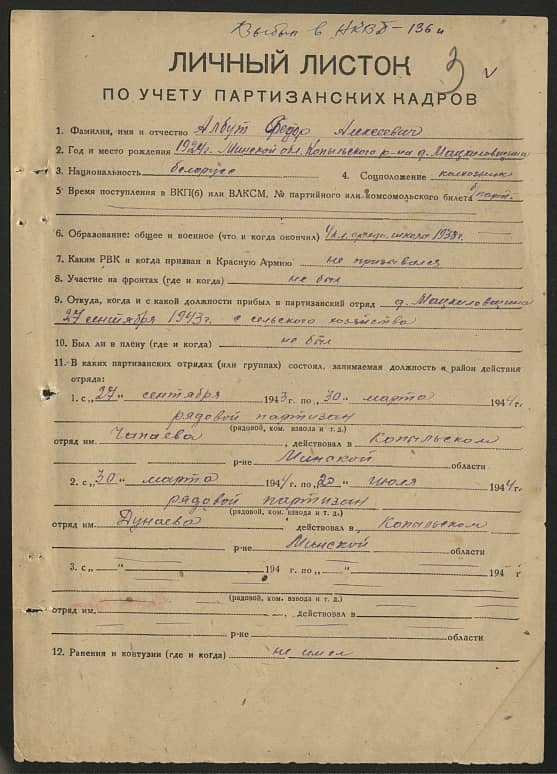 Выбыл в НКВД - 136 и
3 v
ЛИЧНЫЙ ЛИСТОК
ПО УЧЕТУ ПАРТИЗАНСКИХ КАДРОВ
1. Фамилия, имя и отчество Албут Федор Алексеевич
2. Год и место рождения 1924г. Минской обл. Копыльского р-на д. Мацкиловщина
3. Национальность белорусс 4. Соцположение колхозник
5 Время поступления в ВКП(б) или ВЛКСМ, № партийного или комсомольского билета б/парт.
6. Образование: общее и военное (что и когда окончил) 4 кл. средн. школа 1938г.
7. Каким РВК и когда призван в Красную Армию не призывался
8. Участие на фронтах (где и когда) не был
9. Откуда, когда и с какой должности прибыл в партизанский отряд д. Мацкиловщина
27 сентября 1943г. с сельского хозяйства
10. Был ли в плену (где и когда) не был
11. В каких партизанских отрядах (или группах) состоял, занимаемая должность и район действия
отряда:
1. с „27“ сентября 1943 г. по „30“ марта 1944г.
рядовой партизан
(рядовой, ком. взвода и т. д.)
отряд им. Чапаева, действовал в Копыльском
р-не Минской области
2. с „30“ марта 1944 г. по „20“ июля 1944г.
рядовой партизан
(рядовой, ком. взвода и т. д.)
отряд им. Дунаева действовал в Копыльском
р-не Минской области
3. с „ “ 194 г. по „ “ 194 г
(рядовой, ком. взвода и т. д.)
отряд им. , действовал в
р-не области
12. Ранения и контузии (где и когда) не имел